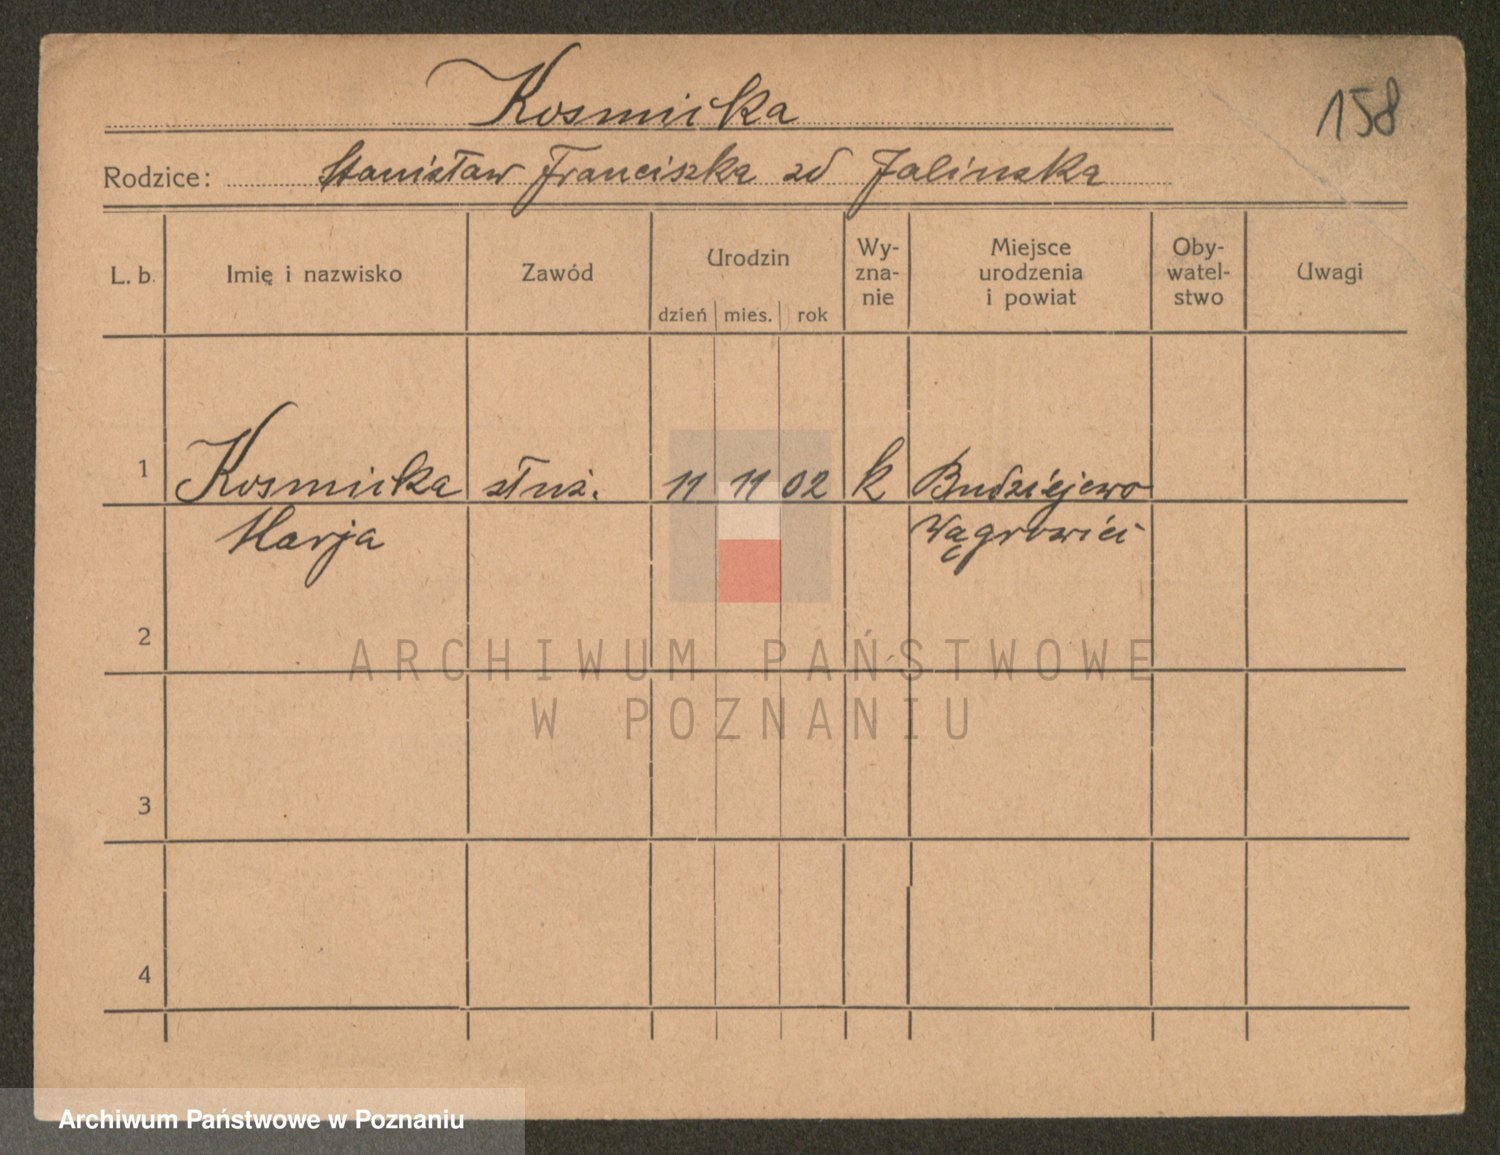 Kosmicka
158
Rodzice: Stanisław Franciszka zd Jalinska
L. b. Imię i nazwisko Zawód Urodzin dzień mies. rok Wy-zna-nie Miejsce urodzenia i powiat Oby-watel-stwo Uwagi
1 Kosmicka służ. 11 11 02 k Budziejewo
Marja Wągrowiec
2
ARCHIWUM PAŃSTWOWE
W POZNANIU
3
4
Archiwum Państwowe w Poznaniu